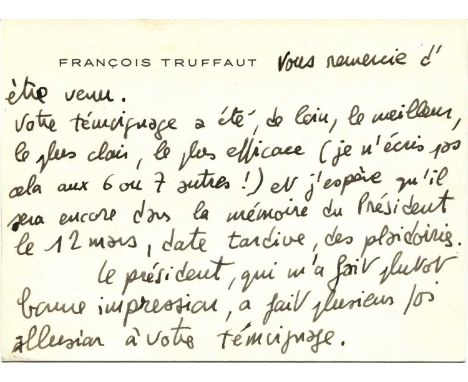 FRANÇOIS TRUFFAUT vous remercie d'
être venu.
Votre témoignage a été, de loin, le meilleur,
le plus clair, le plus efficace (je n'écris pas
cela aux 6 ou 7 autres !) et j'espère qu'il
sera encore dans la mémoire du Président
le 12 mars, date tardive, des plaidoiries.
Le président, qui m'a fait plutôt
bonne impression, a fait plusieurs fois
allusion à votre témoignage.